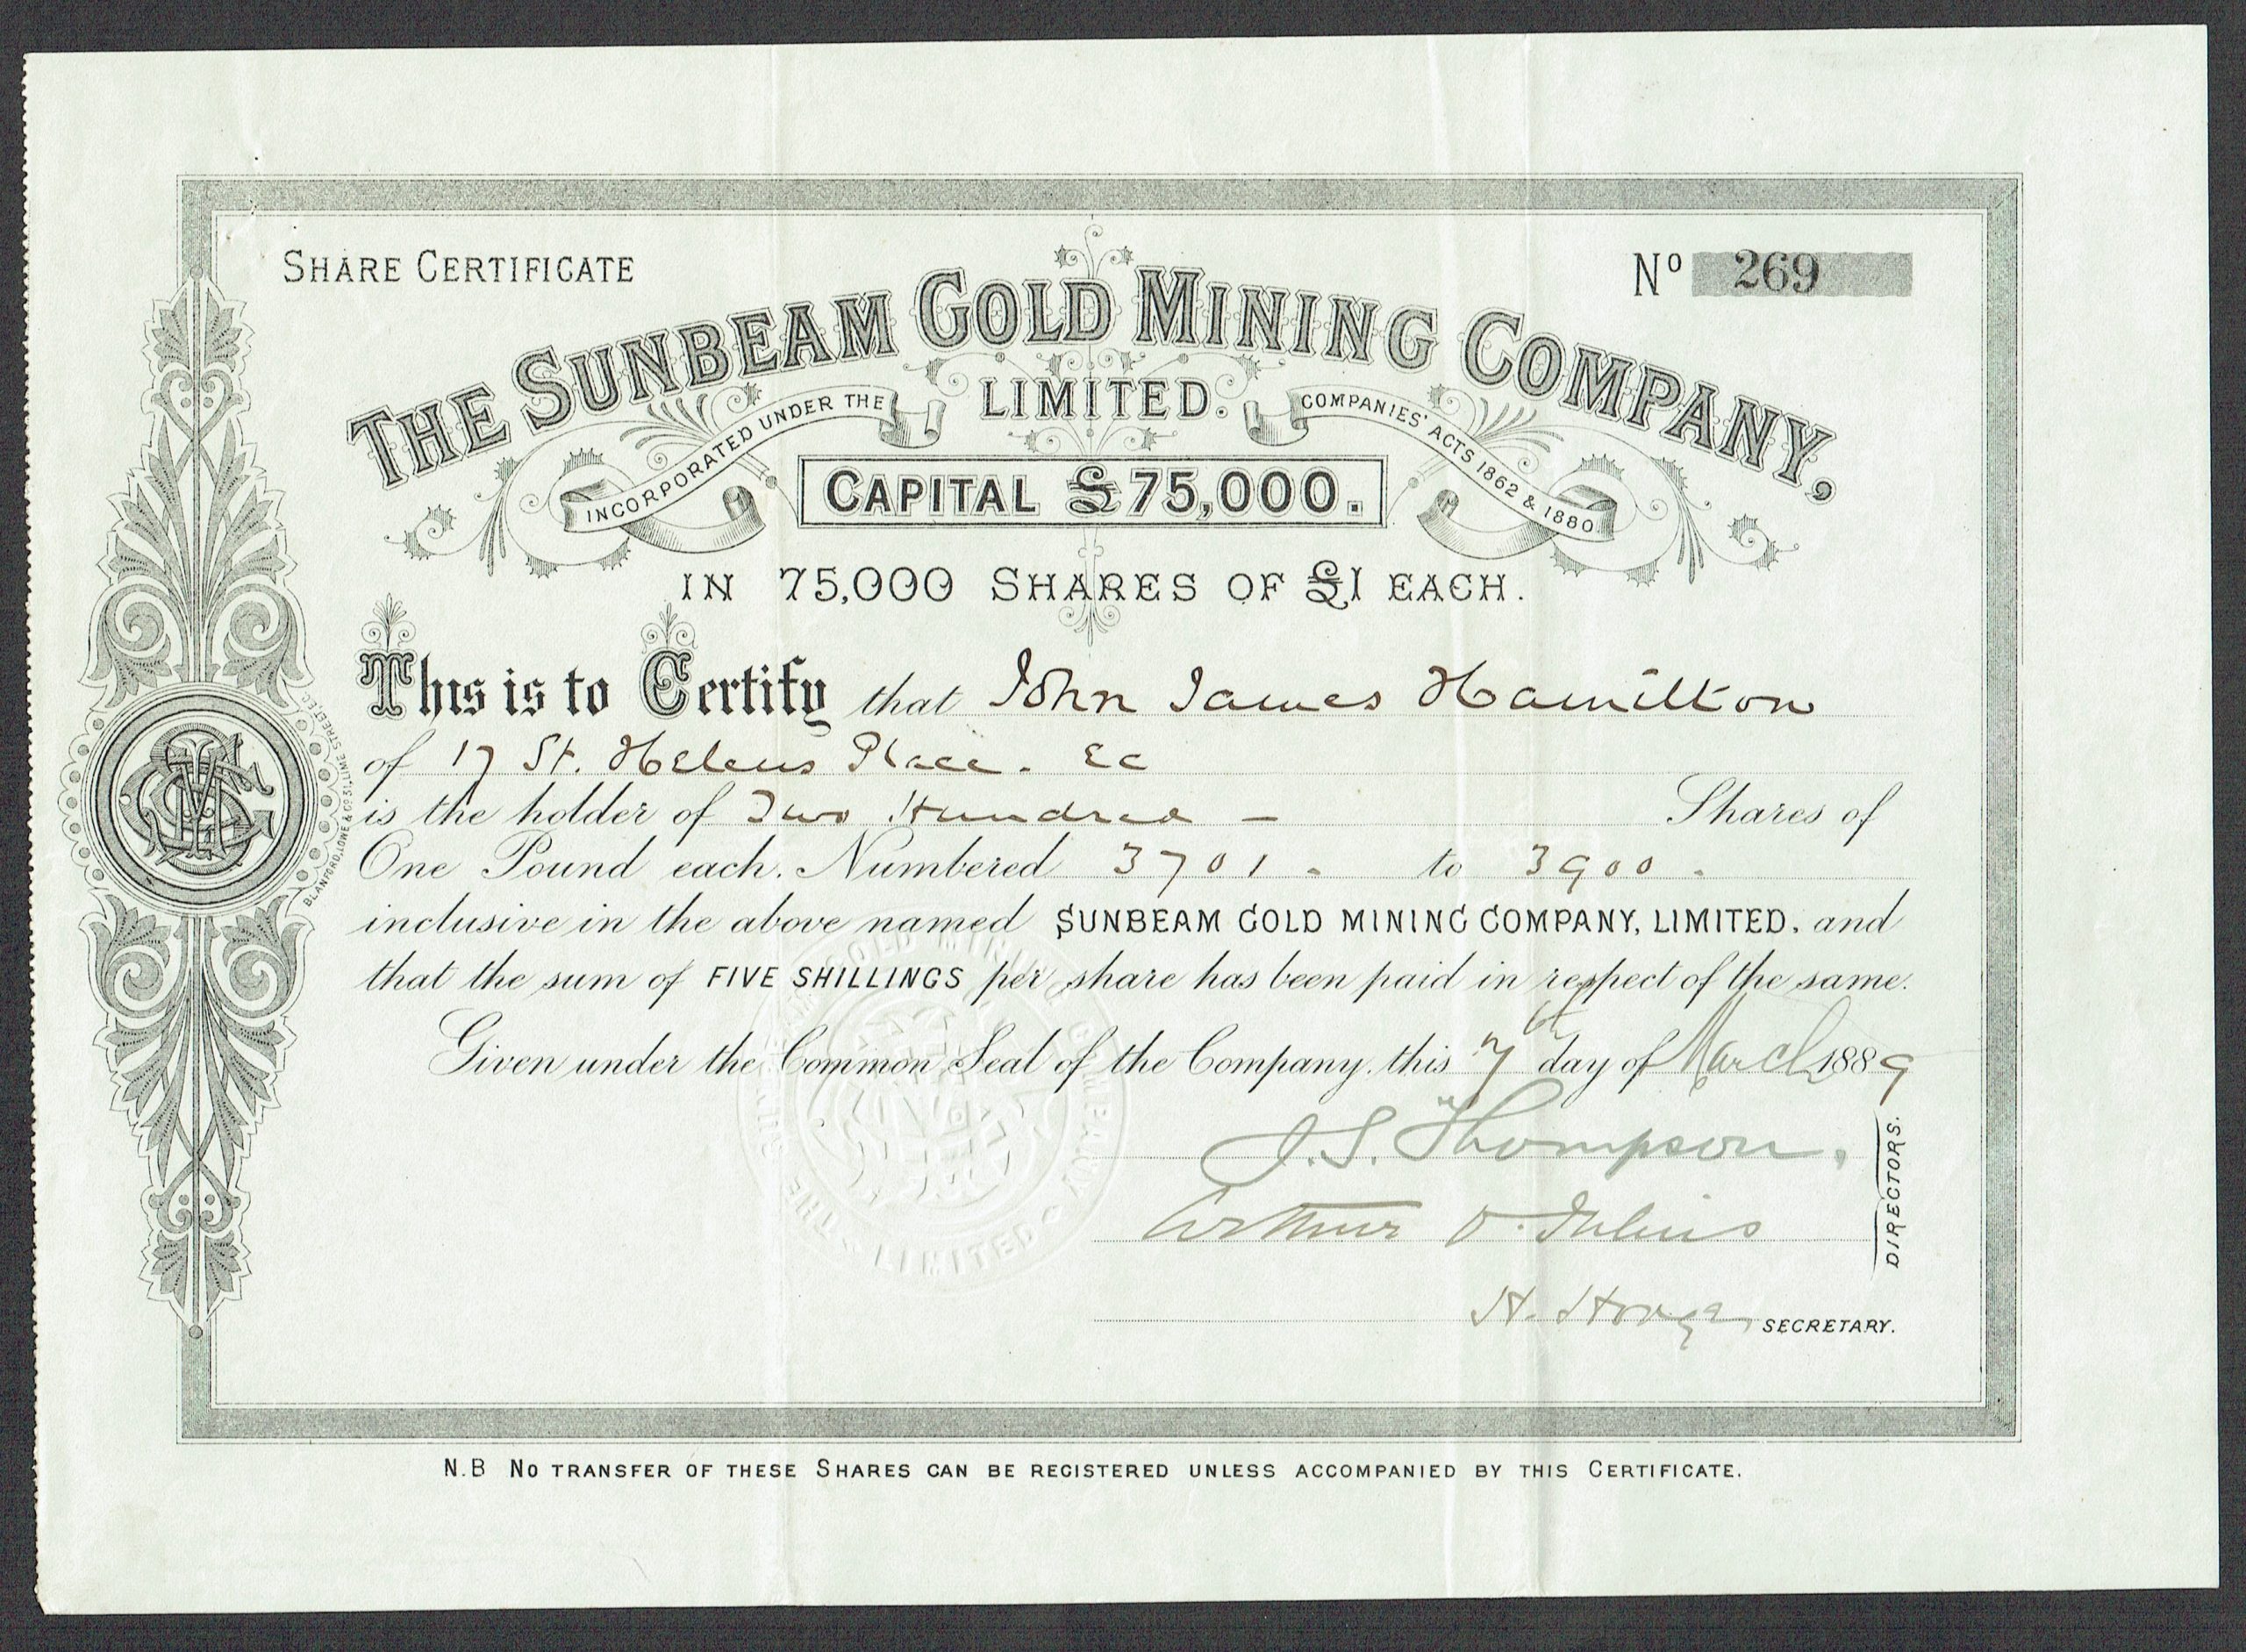 SHARE CERTIFICATE
Nº 269
THE SUNBEAM GOLD MINING COMPANY,
LIMITED.
INCORPORATED UNDER THE COMPANIES' ACTS 1862 & 1880
CAPITAL £75,000.
IN 75,000 SHARES OF £1 EACH.
This is to Certify that John James Hamilton
of 17 St. Helens Place. EC
is the holder of Two Hundred – Shares of
One Pound each. Numbered 3701. to 3900.
inclusive in the above named SUNBEAM GOLD MINING COMPANY, LIMITED. and
that the sum of FIVE SHILLINGS per share has been paid in respect of the same.
Given under the Common Seal of the Company, this 7th day of March 1889
J. S. Thompson.
Arthur O. Julius
DIRECTORS.
H. SECRETARY.
BLANFORD, LOWE & CO 31, LIME STREET, E.C.
THE SUNBEAM GOLD MINING COMPANY LIMITED
N.B NO TRANSFER OF THESE SHARES CAN BE REGISTERED UNLESS ACCOMPANIED BY THIS CERTIFICATE.